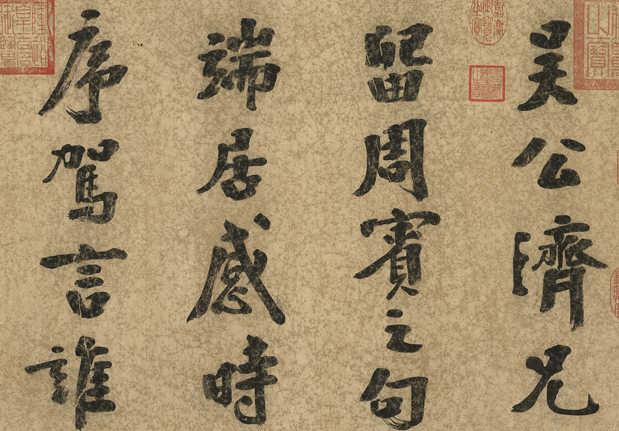 吴公濟兄
留周賓之句
端居感時
序駕言誰